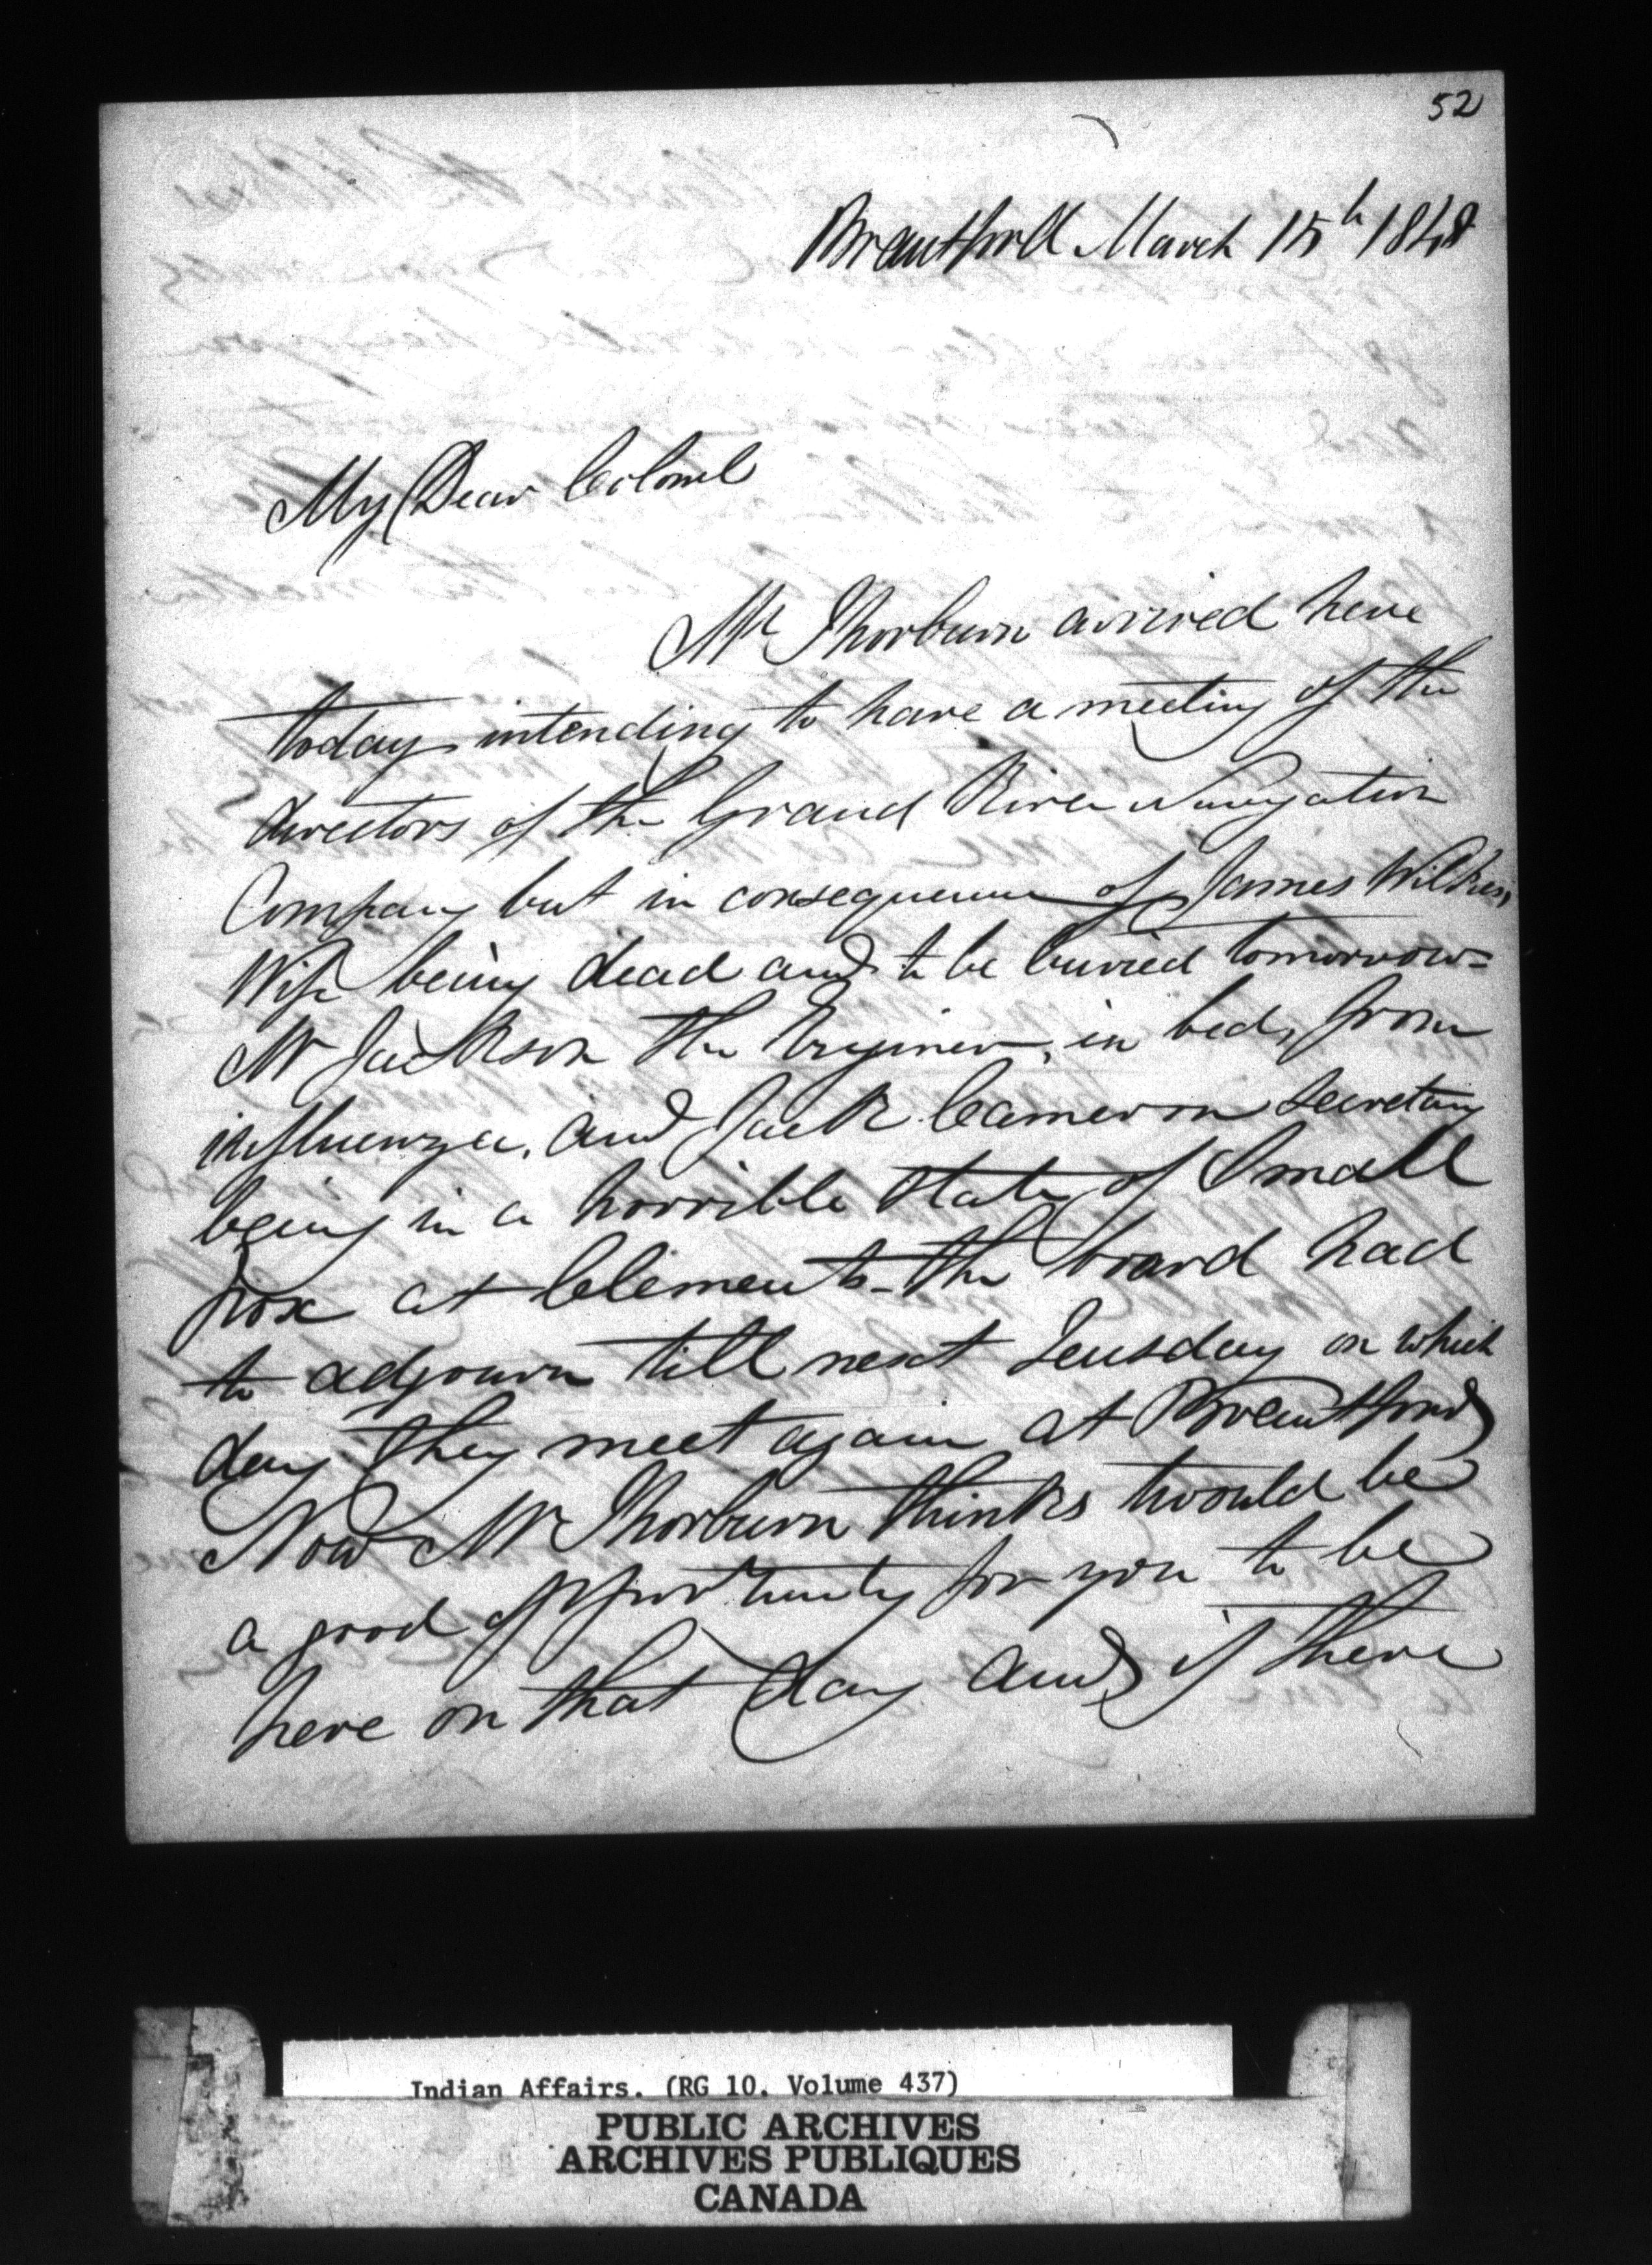 52
Brantford March 15h 1848
My Dear Colonel
Mr Thorburn arrived here
today intending to have a meeting of the
directors of the Grand River Navigation
Company but in consequence of James Wilkes,
Wife being dead and to be buried tomorrow=
Mr Jackson the Enginer, in bed, from
influenza, and Jack Cameron secretary
being in a horrible state of Small
pox at Clements - the board had
to adjourn till next Teusday on which
day they meet again at Brantford
Now Mr Thorburn thinks twould be
a good opportunity for you to be
here on that day and if there
Indian Affairs. (RG 10, Volume 437)
PUBLIC ARCHIVES
ARCHIVES PUBLIQUES
CANADA